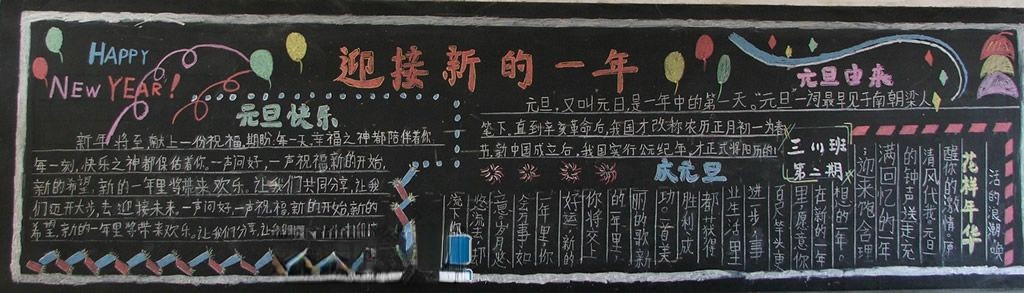 HAPPY
NEW YEAR!
迎接新的一年
元旦快乐
新年将至献上一份祝福,期盼每一天幸福之神都陪伴着你
每一刻,快乐之神都保佑着你.一声问好,一声祝福,新的开始,
新的希望,新的一年里将带来欢乐.让我们共同分享,让我
们迈开大步,去迎接未来.一声问好,一声祝福,新的开始,新的
希望,新的一年里将带来欢乐.让我们分享,让
元旦由来
元旦,又叫元日,是一年中的第一天。"元旦"一词最早见于南朝梁人
笔下.直到辛亥革命后,我国才改称农历正月初一为春
节,新中国成立后,我国实行公元纪年,才正式将阳历的1
三川班
第二期
庆元旦
在新的一年
里,愿意你
百尺竿头更
进一步,事
业生活里
都获得
胜利,成
功。首首美
丽的歌,新
的年里,
你将交上
好运,新的
一年里,你
会万事如
意,岁月悠
花样年华
活的浪潮,唤
醒你的激情,愿
清风代我,元旦
的钟声送走充
满回忆的年
,迎来饱含理
想的一年。